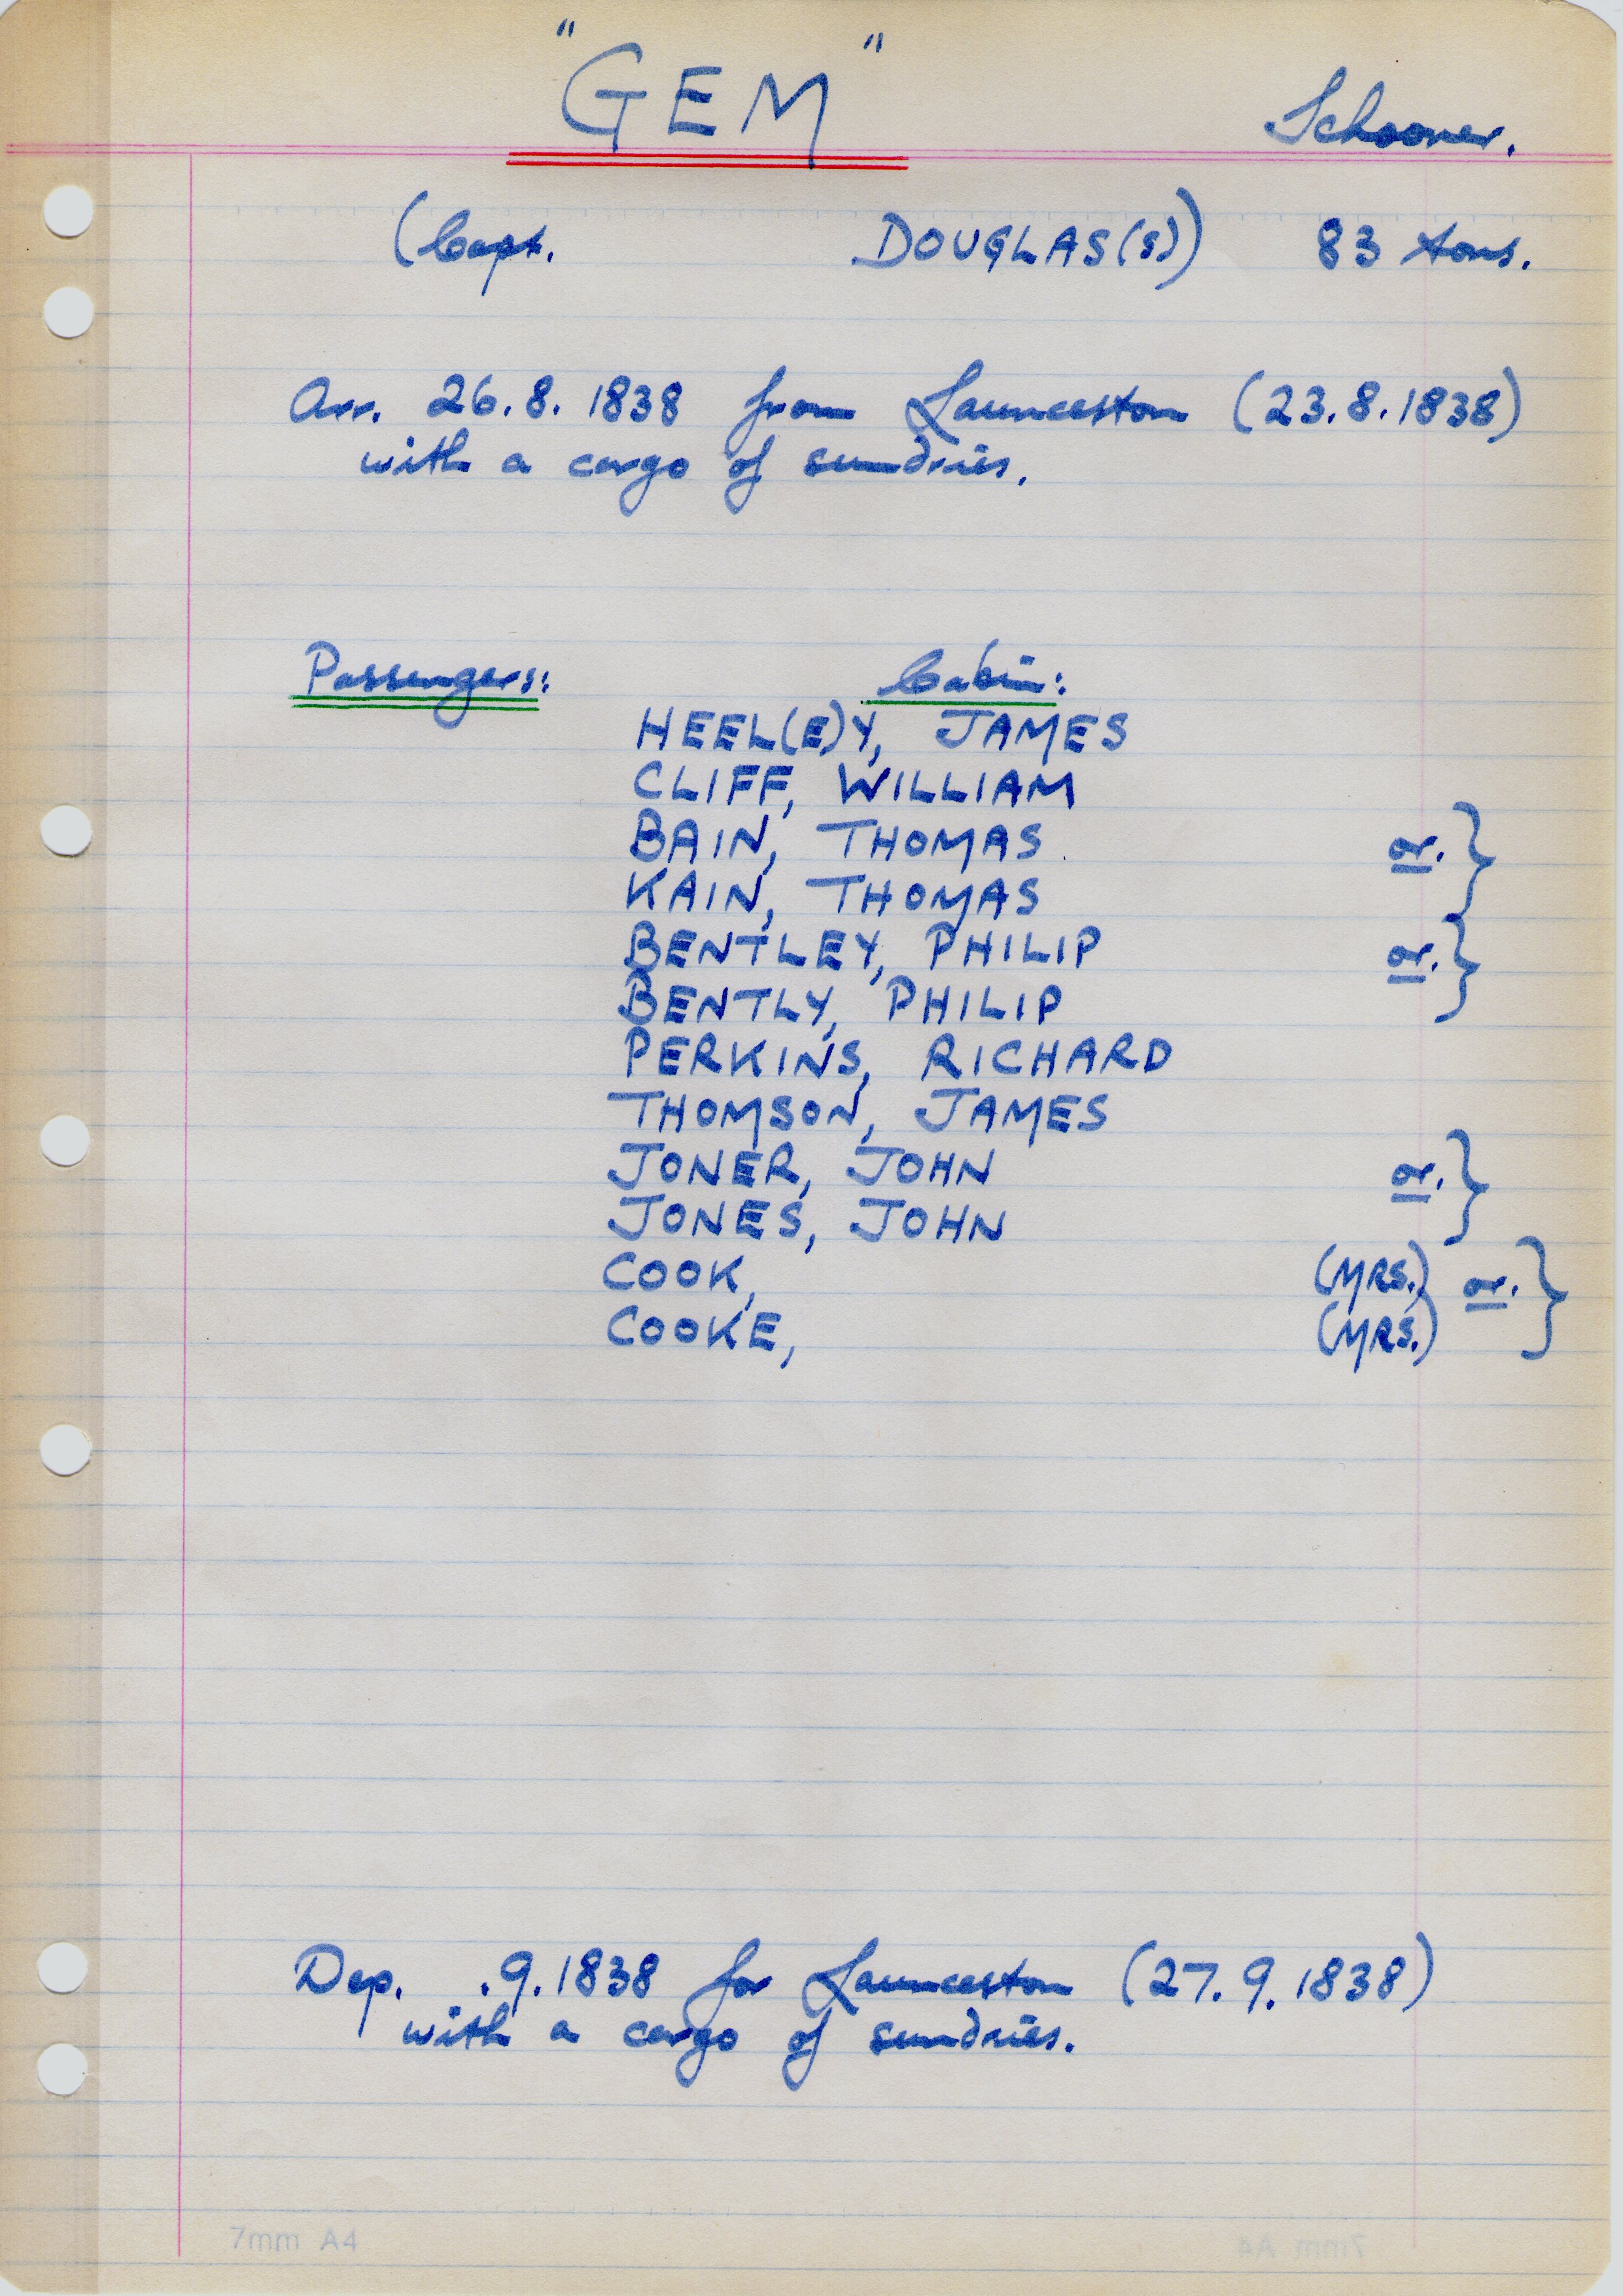 "GEM" Schooner.
(Capt. DOUGLAS(S)) 83 tons.
Arr. 26.8.1838 from Launceston (23.8.1838)
with a cargo of sundries.
Passengers: Cabin:
HEEL(E)Y, JAMES
CLIFF, WILLIAM
BAIN, THOMAS or. }
KAIN, THOMAS
BENTLEY, PHILIP or. }
BENTLY, PHILIP
PERKINS, RICHARD
THOMSON, JAMES
JONER, JOHN or. }
JONES, JOHN
COOK, (MRS.) or. }
COOKE, (MRS.)
Dep. .9.1838 for Launceston (27.9.1838)
with a cargo of sundries.
7mm A4
7mm A4